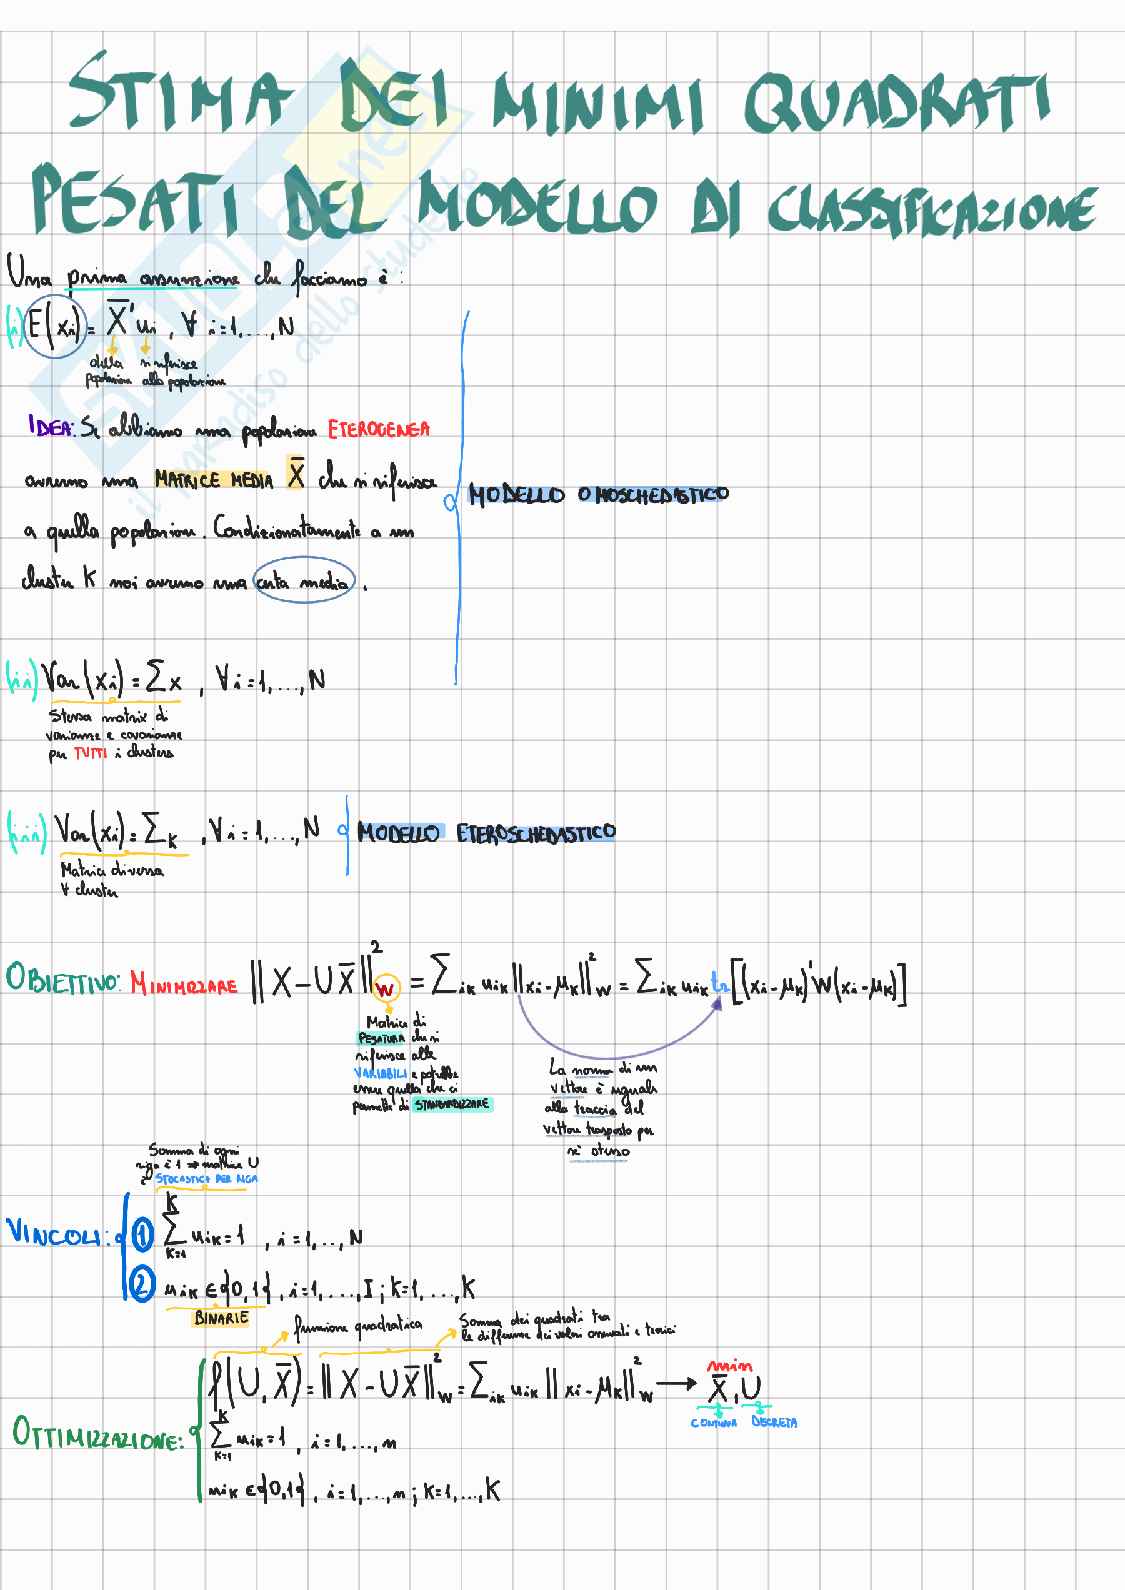 STIMA DEI MINIMI QUADRATI
PESATI DEL MODELLO DI CLASSIFICAZIONE
Una prima assunzione che facciamo è:
(i) E(xi) = X̄' ui , ∀ i=1,...,N
della si riferisce
popolazione alla popolazione
IDEA: Se abbiamo una popolazione ETEROGENEA
avremo una MATRICE MEDIA X̄ che si riferisce
a quella popolazione. Condizionatamente a un
cluster K noi avremo una certa media.
MODELLO OMOSCHEDASTICO
(ii) Var(xi) = Σx , ∀ i=1,...,N
Stessa matrice di
varianze e covarianze
per TUTTI i clusters
(iii) Var(xi) = ΣK , ∀ i=1,...,N MODELLO ETEROSCHEDASTICO
Matrice diversa
∀ cluster
OBIETTIVO: MINIMIZZARE ‖X-UX̄‖²W = ΣiK uiK ‖xi-μK‖²W = ΣiK uiK tr[(xi-μK)'W(xi-μK)]
Matrice di
PESATURA che si
riferisce alle
VARIABILI e potrebbe
essere quella che ci
permette di STANDARDIZZARE
La norma di un
vettore è uguale
alla traccia del
vettore trasposto per
sé stesso
Somma di ogni
riga è 1 ⇒ matrice U
è STOCASTICA PER RIGA
VINCOLI: ① Σ(K=1→K) uiK=1 , i=1,..,N
② uiK ∈ {0,1} , i=1,...,I ; K=1,...,K
BINARIE
funzione quadratica
Somma dei quadrati tra
le differenze dei valori osservati e teorici
f(U,X̄) = ‖X-UX̄‖²W = ΣiK uiK ‖xi-μK‖²W → min X̄,U
CONTINUA DISCRETA
OTTIMIZZAZIONE: Σ(K=1→K) uiK=1 , i=1,...,n
uiK ∈ {0,1} , i=1,...,n ; K=1,...,K
Skuola.net
il paradiso dello studente